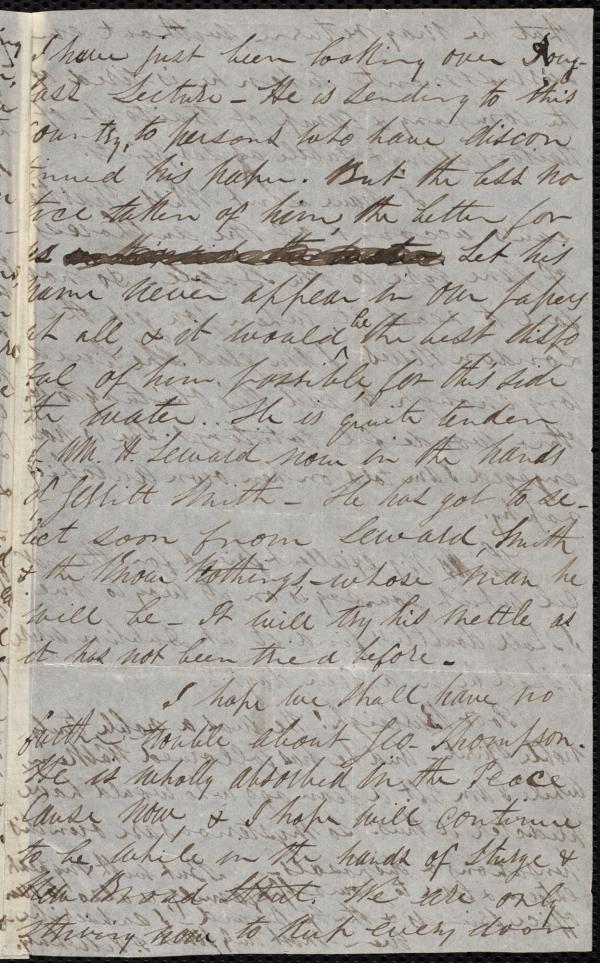 I have just been looking over Doug-
lass Lecture - He is sending to this
country, to persons who have discon
tinued his paper. But the less no
tice taken of him, the better for
us Let his
name never appear in our papers
at all, & it would be the best dispo
sal of him possible, for this side
the water.. He is quite tender
of Wm. H. Seward now in the hands
of Gerritt Smith - He has got to se-
lect soon from Seward, Smith
& the Know Nothings - whose man he
will be - It will try his mettle as
it has not been tried before -
I hope we shall have no
further trouble about Geo. Thompson.
He is wholly absorbed in the Peace
Cause now, & I hope will continue
to be while in the hands of Sturge &
New Broad Street. We are only
striving now to keep every door